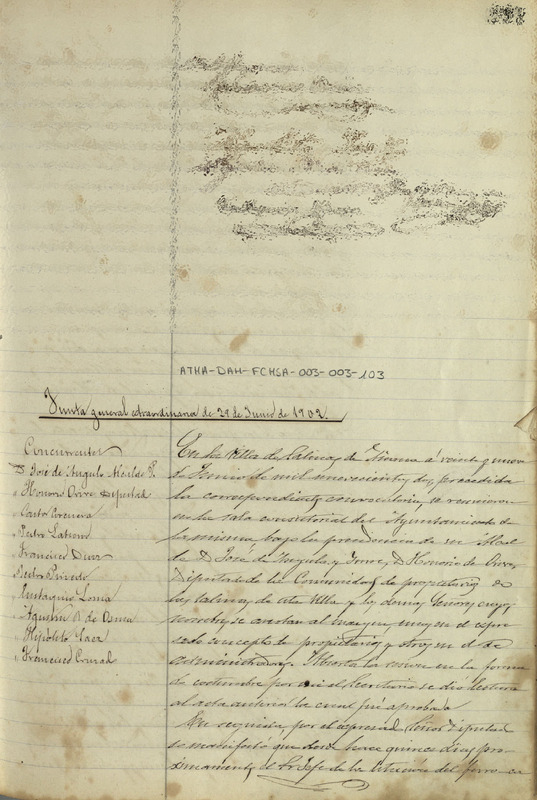 ATHA-DAH-FCHSA-003-003-103
Junta general extraordinaria de 29 de Junio de 1902.
Concurrentes
D. José de Angulo Alcalde P.
" Honorio Diputad
"
" Pedro
" Francisco
" Pedro
" Eustaquio Loma
" Agustin R. de
" Hipolito Saez
" Francisco
En la Villa de Salinas de Añana á veinte y nueve
de Junio de mil novecientos dos, precedida
la correspondiente convocatoria, se reunieron
en la Sala consistorial del Ayuntamiento de
la misma, bajo la presidencia de su Alcal
de D. José de Angulo y D. Honorio de
Diputado de la Comunidad de propietarios de
las Salinas de esta Villa y los demas Señores cuyos
nombres se anotan al margen, unos en el expre-
sado concepto de propietarios y otros en el de
administradores. Abierta la sesion en la forma
de costumbre por mi el Secretario se dio lectura
al acta anterior la cual fué aprobada
En seguida por el expresado Señor Diputado
se manifestó que desde hace quince dias pro-
ximamente el Sr Jefe de la estacion del ferro-ca